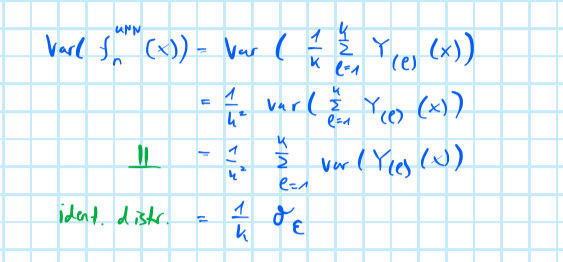 Var( f_n^{kNN} (x)) = Var ( \frac{1}{k} \sum_{l=1}^{k} Y_{(l)} (x))
= \frac{1}{k^2} var ( \sum_{l=1}^{k} Y_{(l)} (x))
⫫ = \frac{1}{k^2} \sum_{l=1}^{k} var ( Y_{(l)} (x))
ident. distr. = \frac{1}{k} σ_ε